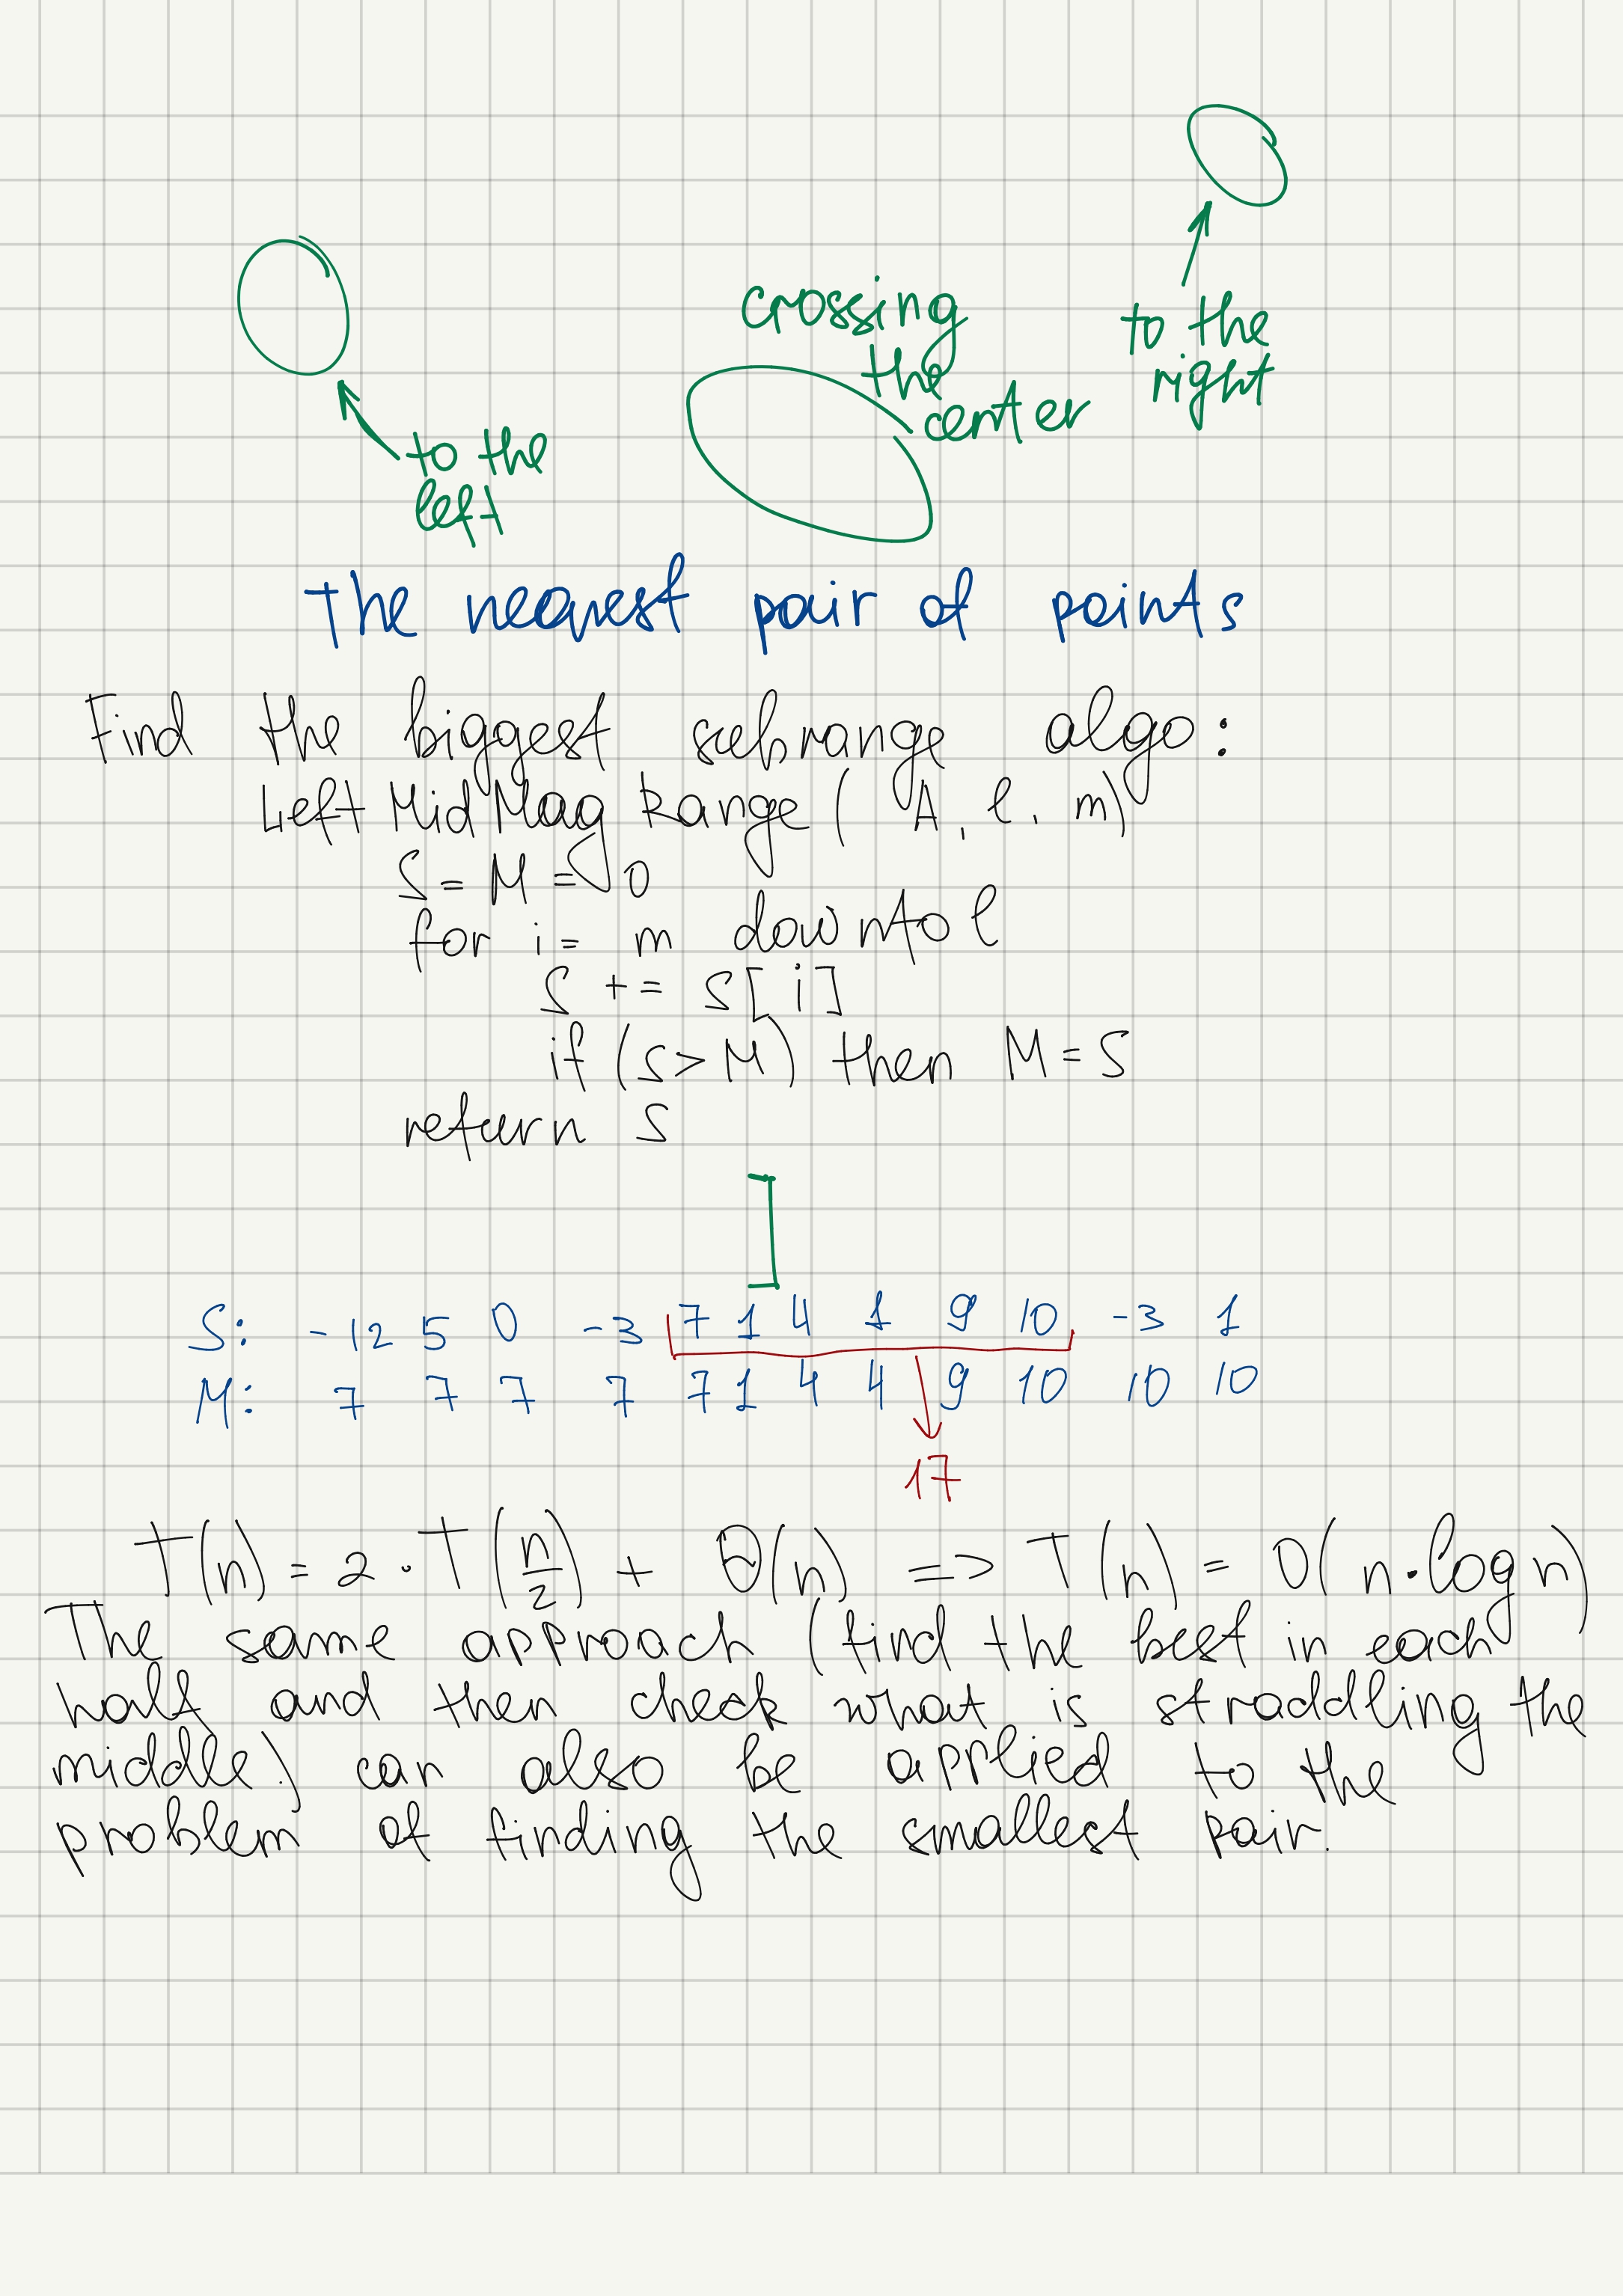 crossing
the
center
to the
right
to the
left
The nearest pair of points
Find the biggest subrange algo:
Left Mid Max Range ( A, l, m)
S = M = 0
for i = m downto l
S += s[i]
if (S > M) then M = S
return S
]
S: -12 5 0 -3 7 1 4 1 9 10 -3 1
M: 7 7 7 7 7 1 4 4 9 10 10 10
17
T(n) = 2 · T(n/2) + Θ(n) => T(n) = O(n·log n)
The same approach (find the best in each
half and then check what is straddling the
middle) can also be applied to the
problem of finding the smallest pair.